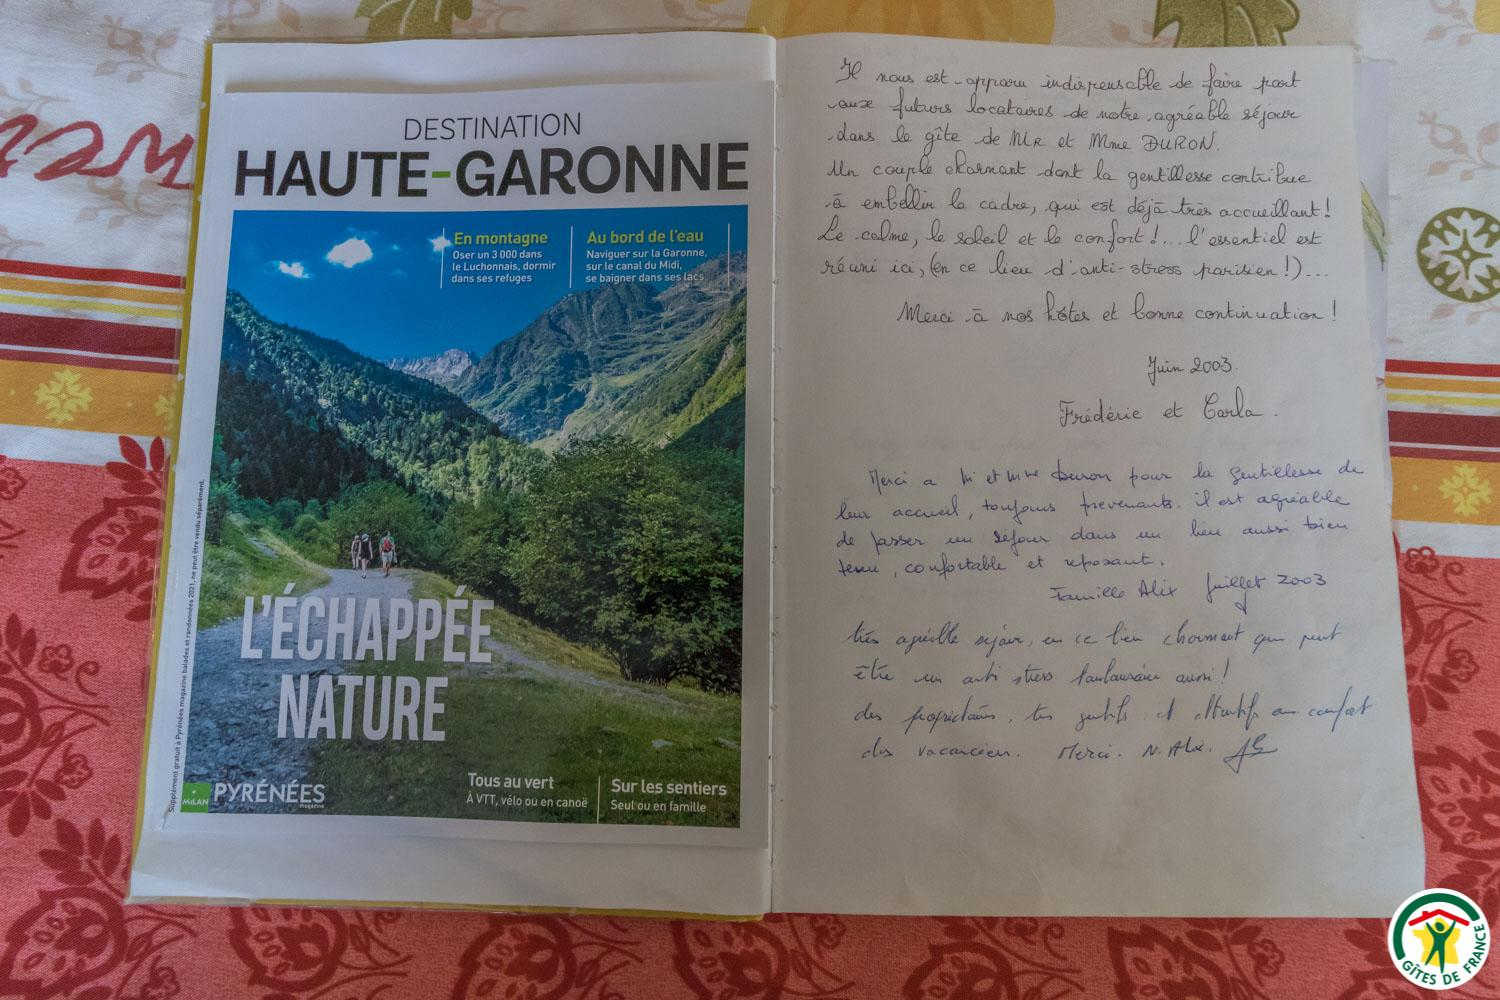 DESTINATION
HAUTE-GARONNE
En montagne
Oser un 3 000 dans
le Luchonnais, dormir
dans ses refuges
Au bord de l'eau
Naviguer sur la Garonne,
sur le canal du Midi,
se baigner dans ses lacs
L'ÉCHAPPÉE
NATURE
Supplément gratuit à Pyrénées magazine balades et randonnées 2021, ne peut être vendu séparément.
MILAN
PYRÉNÉES
magazine
Tous au vert
À VTT, vélo ou en canoë
Sur les sentiers
Seul ou en famille
Il nous est apparu indispensable de faire part
aux futurs locataires de notre agréable séjour
dans le gîte de Mr et Mme DURON.
Un couple charmant dont la gentillesse contribue
à embellir le cadre, qui est déjà très accueillant!
Le calme, le soleil et le confort!... l'essentiel est
réuni ici, (en ce lieu d'anti-stress parisien!)...
Merci à nos hôtes et bonne continuation!
Juin 2003.
Frédéric et Carla.
Merci a M et Mme Duron pour la gentillesse de
leur accueil, toujours prevenants. il est agréable
de passer un séjour dans un lieu aussi bien
tenu, confortable et reposant.
Famille Alix Juillet 2003
très agréable séjour, en ce lieu charmant qui peut
être un anti stress toulousain aussi!
des propriétaires, très gentils et attentifs au confort
des vacanciers. Merci. N. Alix.
GÎTES DE FRANCE